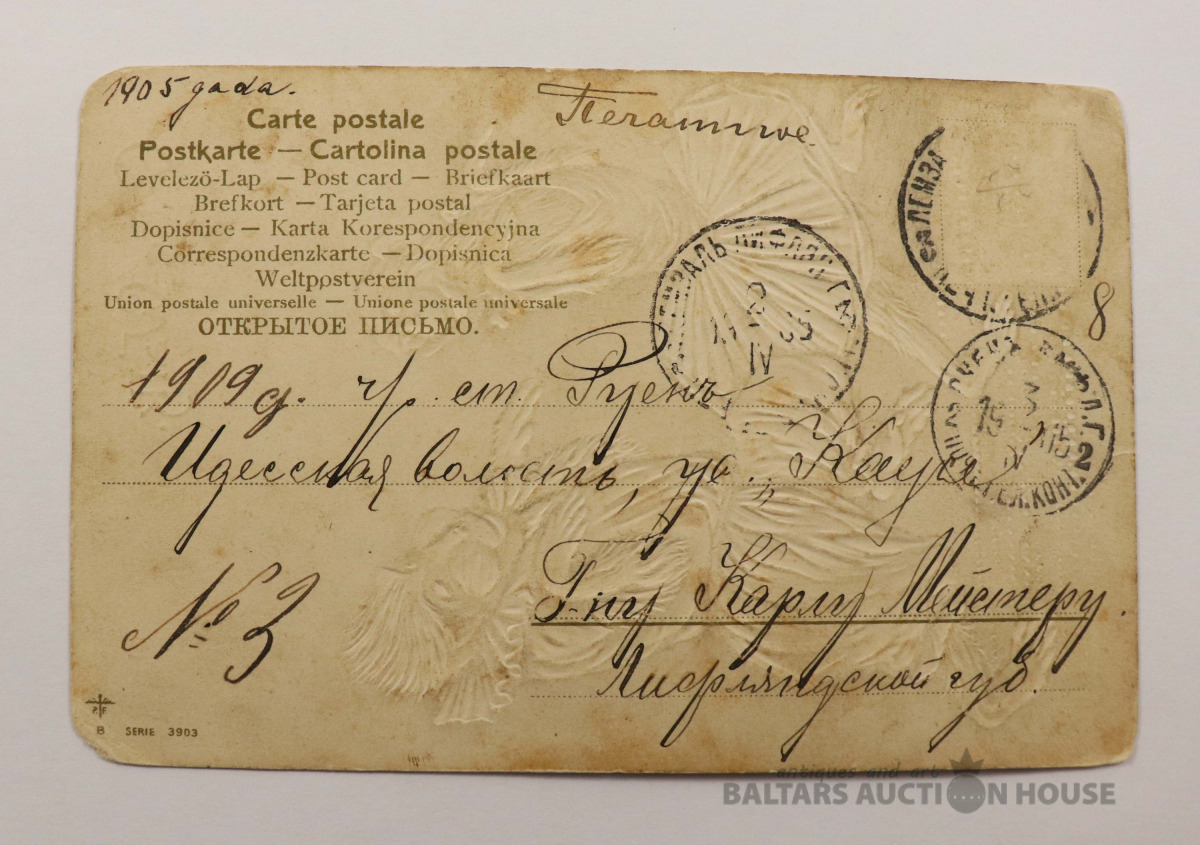 1905 gada.
Печатное.
Carte postale
Postkarte — Cartolina postale
Levelezö-Lap — Post card — Briefkaart
Brefkort — Tarjeta postal
Dopisnice — Karta Korespondencyjna
Correspondenzkarte — Dopisnica
Weltpostverein
Union postale universelle — Unione postale universale
ОТКРЫТОЕ ПИСЬМО.
ЛИФЛЯН
2
IV 05
8
3
15 05
IV
2
1909 г. ч/ ст. Руенъ
Идесская волость, ус. „Кауя“
№ 3
Г-ну Карлу Мейстеру.
Лифляндской губ.
P F
B SERIE 3903
antiques and art
BALTARS AUCTION HOUSE